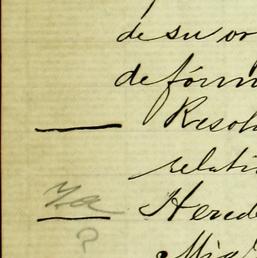 de su or
de fórm
Resol
relati
Ya Hered
?
Mig